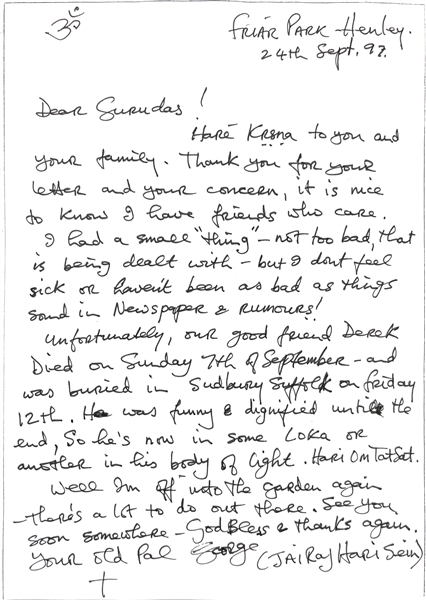 ॐ
FRIAR PARK - Henley.
24th Sept. 97.
Dear Gurudas!
Harē Kṛṣṇa to you and
your family. Thank you for your
letter and your concern, it is nice
to know I have friends who care.
I had a small "thing" - not too bad, that
is being dealt with - but I dont feel
sick or haven't been as bad as things
sound in Newspaper & Rumours!
Unfortunately, our good friend Derek
Died on Sunday 7th of September - and
was buried in Sudbury Suffolk on friday
12th. He was funny & dignified until the
end, So he's now in some Loka or
another in his body of Light. Hari Om Tat Sat.
Well Im off into the garden again
- there's a lot to do out there. See you
soon somewhere - God Bless & thanks again.
Your old Pal George (JAI Raj HARI Sein)